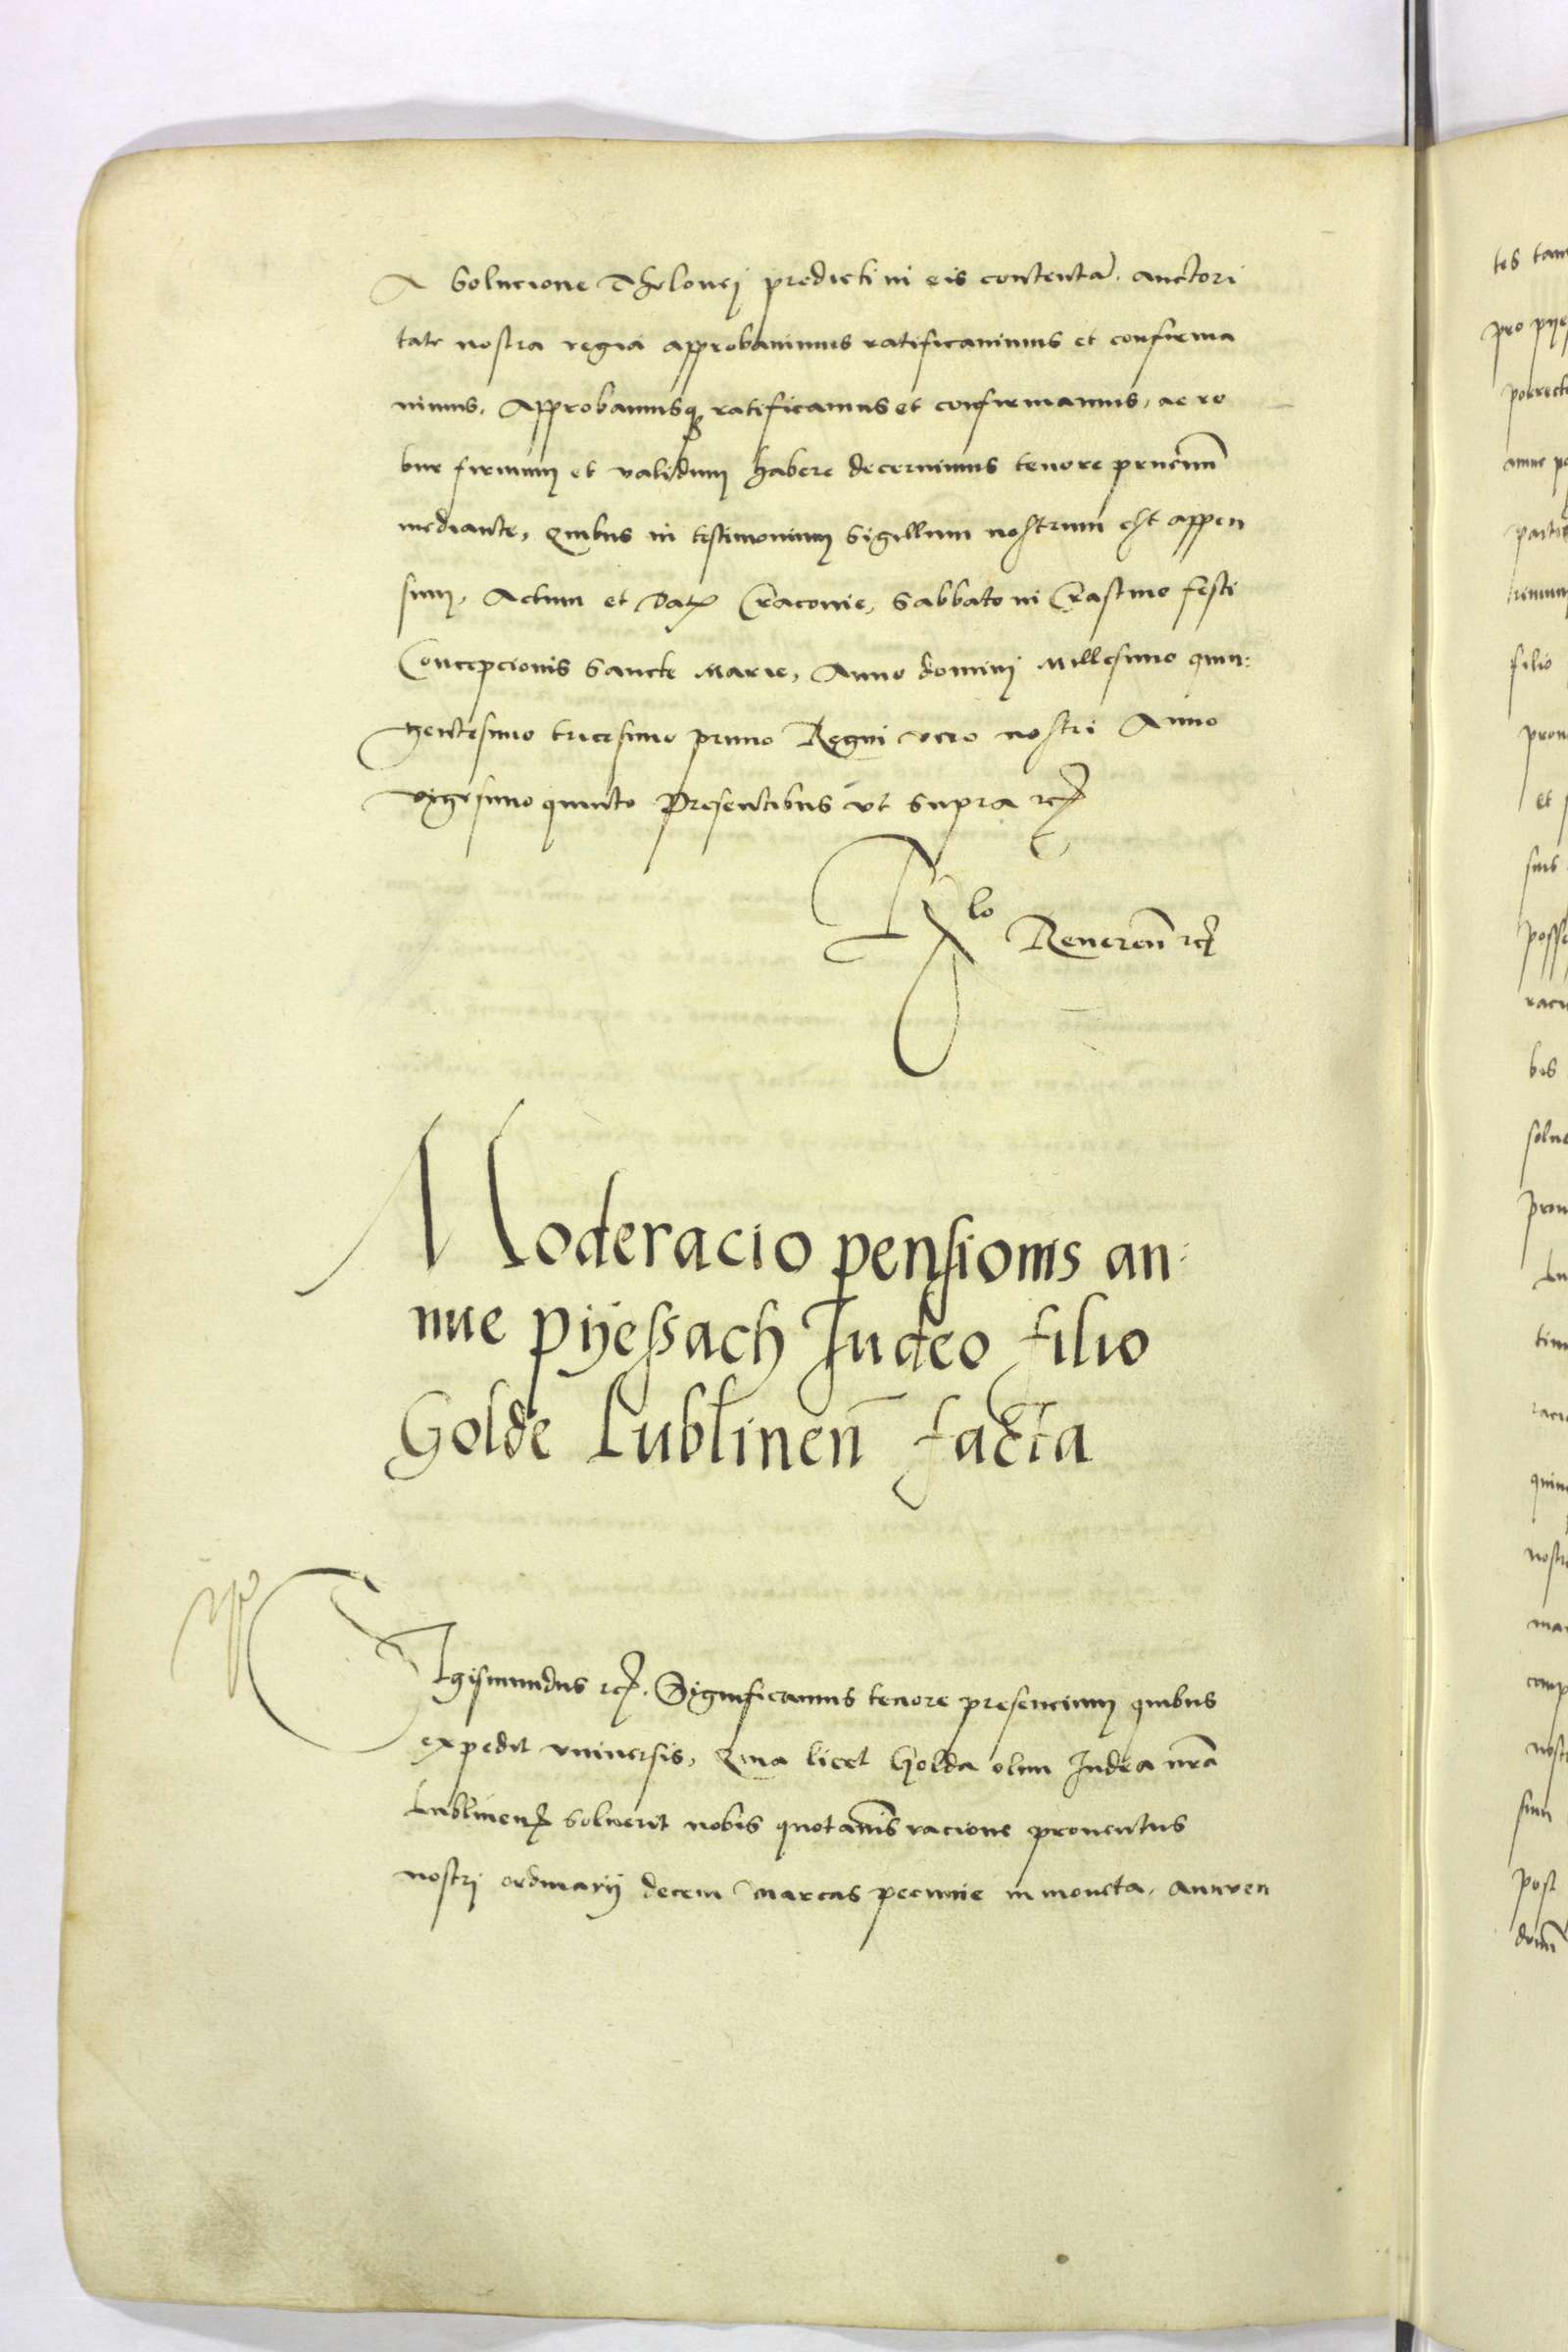 A Solucione Thelonej predicti in eis contentam. auctori
tate nostra regia approbauimus ratificauimus et confirma
uimus, Approbamusque ratificamus et confirmamus, ac ro
bur firmum et validum habere decernimus tenore pñcium
mediante, Quibus in testimonium Sigillum nostrum est appen
sum. Actum et Dat Cracouie, Sabbato in Crastino festi
Concepcionis Sancte Marie, Anno domini Millesimo quin:
gentesimo tricesimo primo Regni vero nostri Anno
vigesimo quinto Presentibus vt supra etc
Rlo Reueren etc
Moderacio pensionis an:
nue Pyessach Iudeo filio
Golde Lublinen facta
Sigismundus etc. Significamus tenore presencium quibus
expedit vniuersis, Quia licet Golda olim Iudea nra
Lublinen soluerit nobis quotannis racione prouentus
nostrj ordinarij decem marcas pecunie in moneta. Anuen
tes tam
pro pye
porrect
anno
filio
et
suis
posse
bes
solue
quin
nostr
comp
nost
post